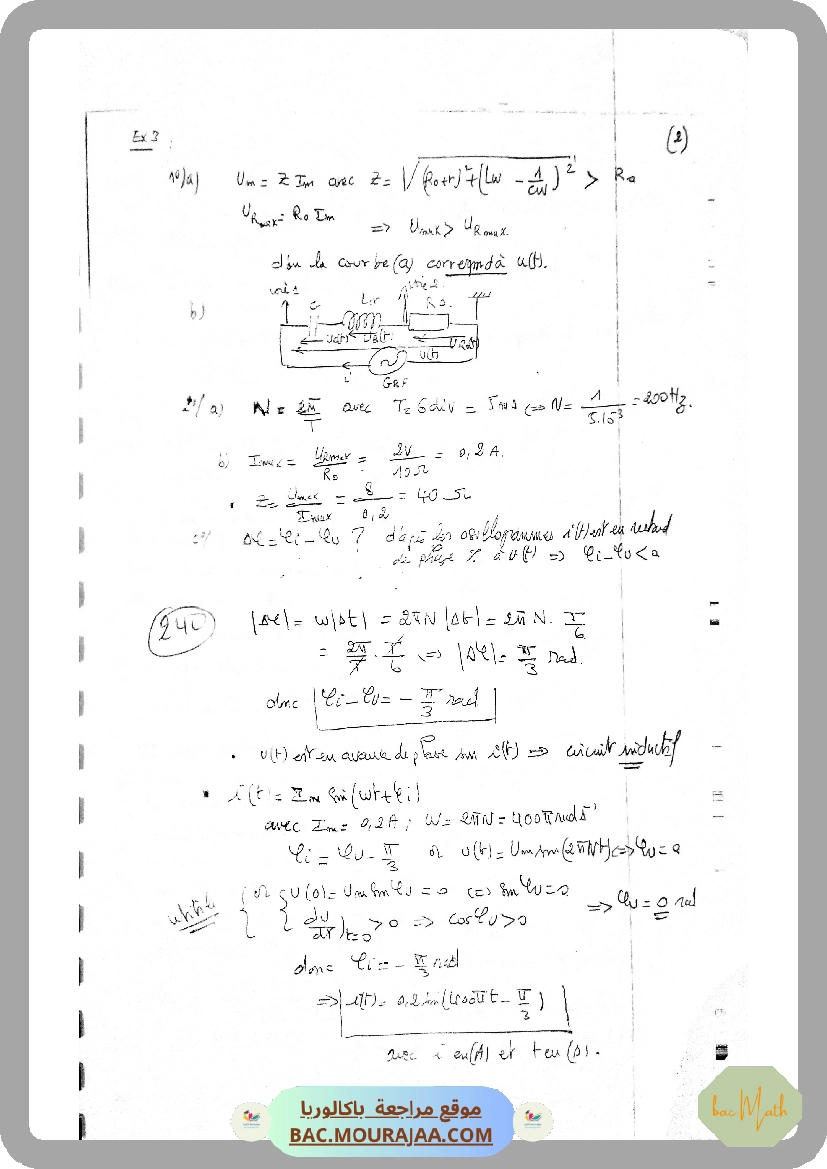 Ex 3 :
(2)
1°/a) Um = Z Im avec Z = √((R0+r)² + (Lw - 1/Cw)²) > R0
URmax = R0 Im
=> Umax > URmax
d'où la courbe (a) correspond à u(t).
voie 1
voie 2
C L,r R0
b)
uc(t) uB(t) uR0(t)
u(t)
i
GBF
2°/ a) N = 2π/T avec T = 6 div = 5 ms <=> N = 1/5.10⁻³ = 200 Hz.
b) Imax = URmax/R0 = 2V/10Ω = 0,2 A.
• Z = Umax/Imax = 8/0,2 = 40 Ω
c°/ Δφ = φi - φu ? d'après les oscillogrammes i(t) est en retard
de phase % à u(t) => φi - φu < 0
240
|Δφ| = w|Δt| = 2πN |Δt| = 2πN . T/6
= 2π/T . T/6 <=> |Δφ| = π/3 rad.
donc φi - φu = - π/3 rad
• u(t) est en avance de phase sur i(t) => circuit inductif
• i(t) = Im sin(wt + φi)
avec Im = 0,2 A ; W = 2πN = 400π rad s⁻¹
φi = φu - π/3 or u(t) = Um sin(2πNt) <=> φu = 0
utile
or { u(0) = Um sin φu = 0 <=> sin φu = 0
du/dt)t=0 > 0 => cos φu > 0
=> φu = 0 rad
donc φi = - π/3 rad
=> i(t) = 0,2 sin(400πt - π/3)
avec i en (A) et t en (s).
موقع مراجعة باكالوريا
BAC.MOURAJAA.COM
bac Math